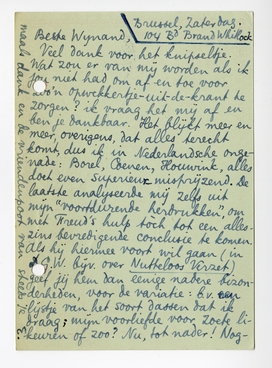 Brussel, Zaterdag.
104 Bd Brand Whitlock
Beste Wijnand,
Veel dank voor het knipseltje.
Wat zou er van mij worden als ik
jou niet had om af en toe voor
zoo'n opwekkertje-uit-de-krant te
zorgen? ik vraag het mij af en
ben je dankbaar. Het blijkt meer en
meer, overigens, dat alles terecht
komt, dus ik in Nederlandsche onge-
nade: Borel, Coenen, Houwink, alles
doet even superieur misprijzend. De
laatste analyseerde mij zelfs uit
mijn "voortdurende herdrukken", om
met Freud's hulp tòch tot een alles-
zins bevredigende conclusie te komen.
Als hij hiermee voort wil gaan (in
D.G.W. bijv. over Nutteloos Verzet)
geef jij hem dan eenige nadere bizon-
derheden, voor de variatie: b.v. een
lijstje van het soort dassen dat ik
draag; mijn voorliefde voor zoete li-
keuren of zoo? Nu, tot nader! Nog-
maals dank en de vriendenpoot van steeds je E.